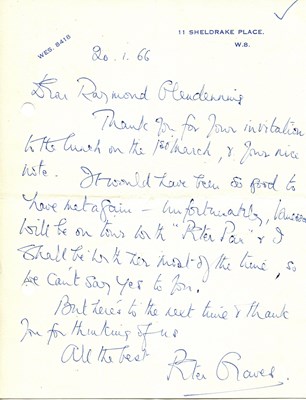 11 SHELDRAKE PLACE.
W.8.
WES. 8418
20. 1. 66
Dear Raymond Glendenning
Thank you for your invitation
to the lunch on the 1st March, & your nice
note. It would have been so good to
have met again – unfortunately, Vanessa
will be on tour with "Peter Pan" & I
shall be with her most of the time, so
we can't say yes to you.
But here's to the next time & thank
you for thinking of us
All the best
Peter Graves.